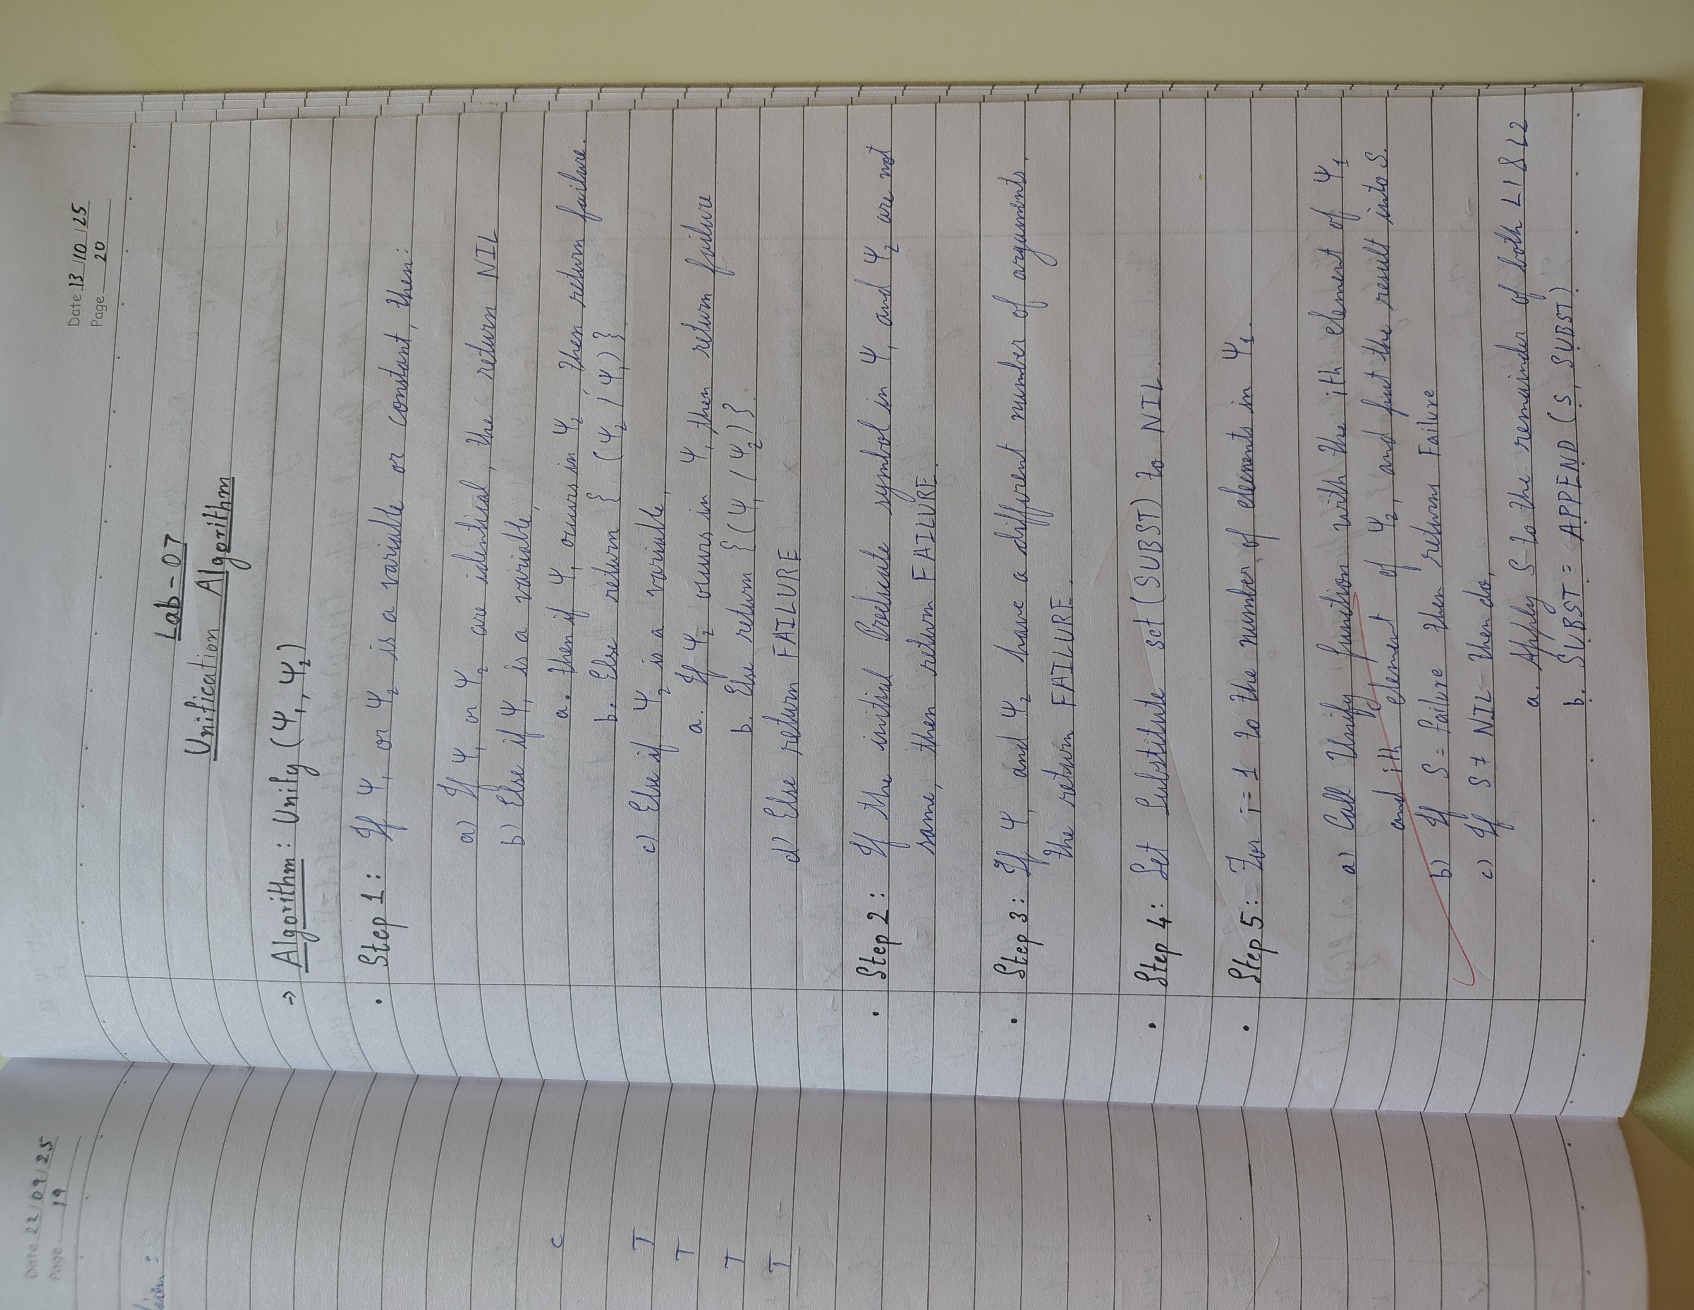 Date 13/10/25
Page 20
Lab-07
Unification Algorithm
→ Algorithm: Unify (Ψ₁, Ψ₂)
• Step 1: If Ψ₁ or Ψ₂ is a variable or constant, then:
a) If Ψ₁ or Ψ₂ are identical, the return NIL
b) Else if Ψ₁ is a variable,
a. then if Ψ₁ occurs in Ψ₂, then return failure.
b. Else return { (Ψ₂ / Ψ₁) }
c) Else if Ψ₂ is a variable,
a. If Ψ₂ occurs in Ψ₁ then return failure
b. Else return {(Ψ₁ / Ψ₂)}
d) Else return FAILURE
• Step 2: If the initial Predicate symbol in Ψ₁ and Ψ₂ are not
same, then return FAILURE.
• Step 3: If Ψ₁ and Ψ₂ have a different number of arguments,
the return FAILURE.
• Step 4: Set Substitute set (SUBST) to NIL.
• Step 5: For i=1 to the number of elements in Ψ₁.
a) Call Unify function with the ith element of Ψ₁
and ith element of Ψ₂, and put the result into S.
b) If S = Failure then returns Failure
c) If S ≠ NIL then do,
a. Apply S to the remainder of both L1 & L2
b. SUBST = APPEND (S, SUBST).
Date 22/09/25
Page 19
C
T
T
T
T